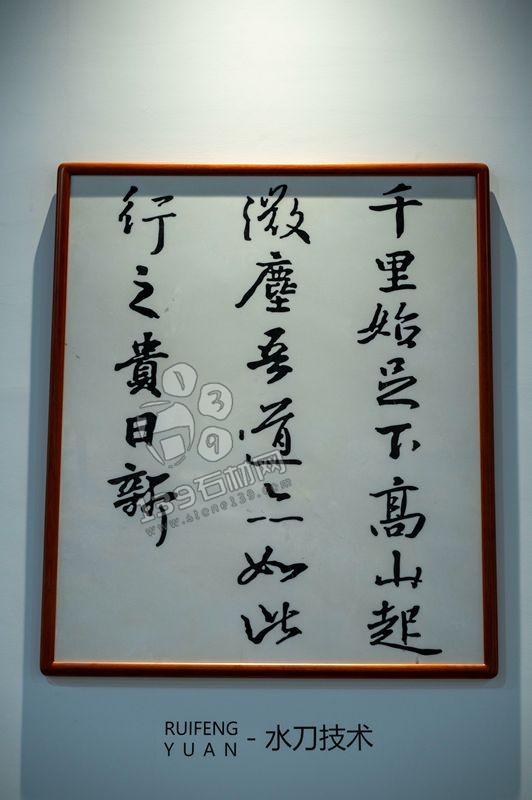 千里始足下高山起
微塵吾道亦如此
行之貴日新
139石材网
www.stone139.com
RUIFENG
YUAN
- 水刀技术